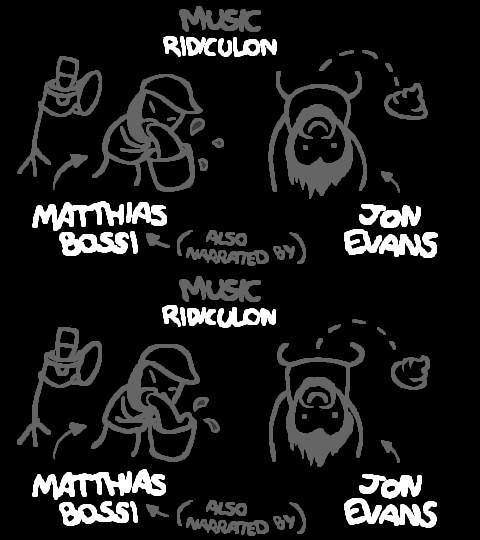 MUSIC
RIDICULON
MATTHIAS
BOSSI
(ALSO
NARRATED BY)
JON
EVANS
MUSIC
RIDICULON
MATTHIAS
BOSSI
(ALSO
NARRATED BY)
JON
EVANS